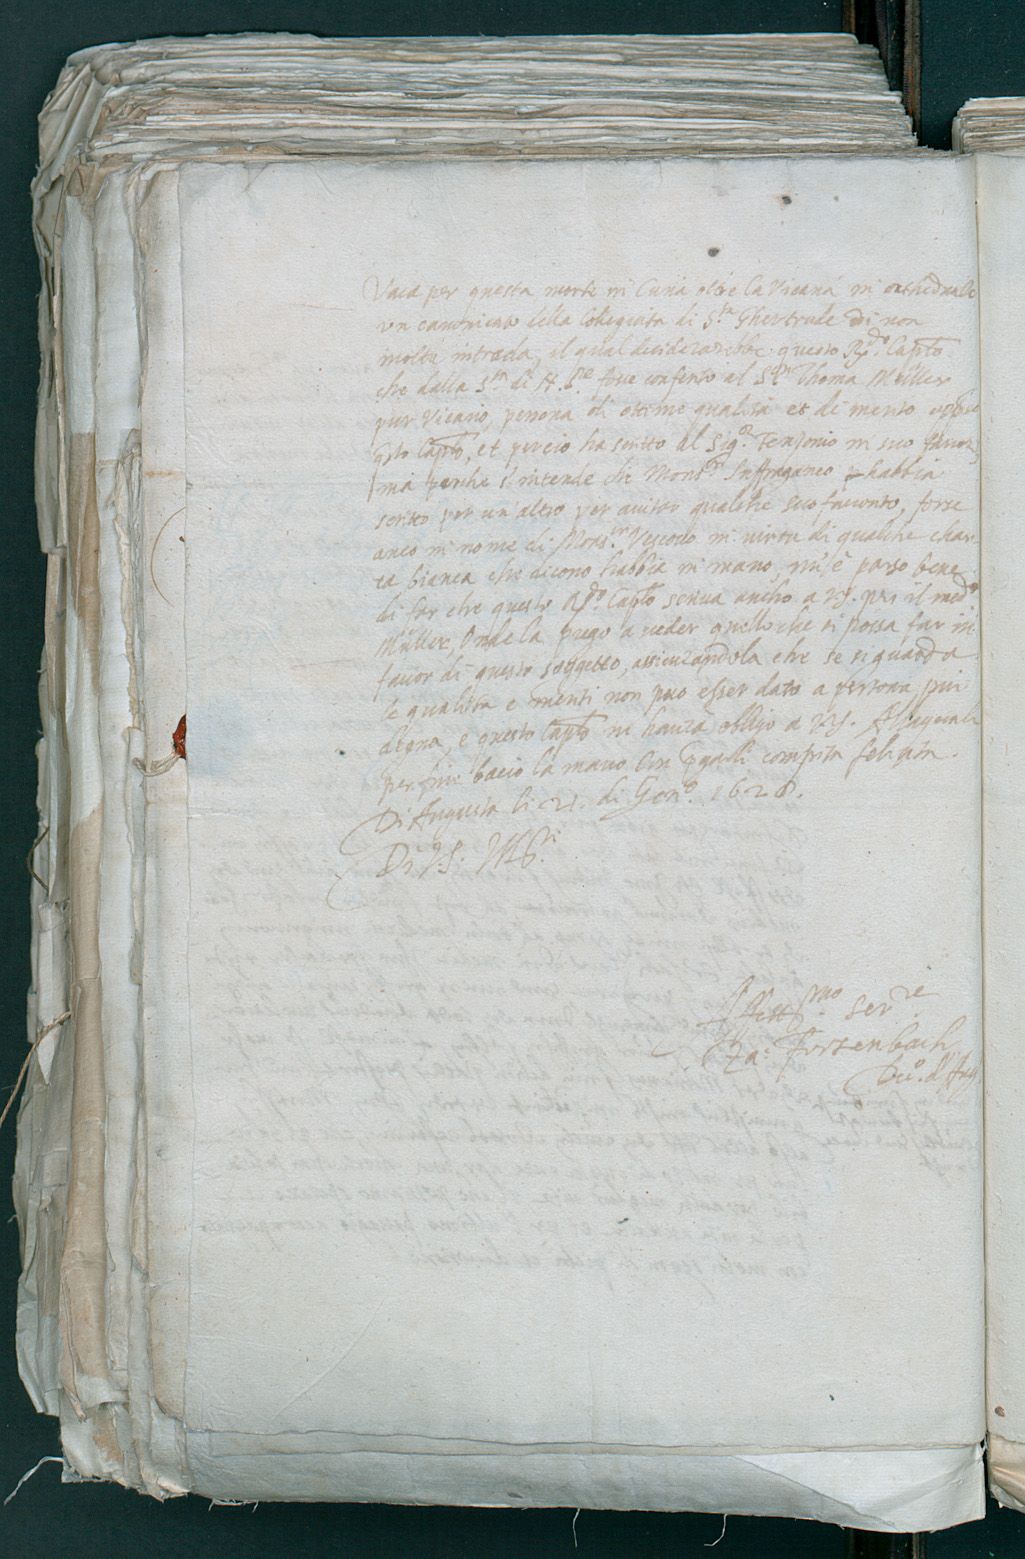 Vaca per questa morte in Curia oltre la Vicaria in cathedrale
un canonicato della Collegiata di S.ta Ghertrude di non
molta intrada, il qual desiderarebbe questo R.do Capto
che dalla S.tà di N. S.re fosse conferito al S.r Thoma Müller
pur Vicario, persona di ottime qualità et di merito appresso
qsto Capto, et perciò ha scritto al Sig.r Tensonio in suo favor,
mà perche s'intende che Mons.r Suffraganeo habbia
scritto per un'altro per aiutar qualche suo favorito, forse
anco in nome di Mons.r Vescovo in virtù di qualche char
ta bianca che dicono habbia in mano, m'è parso bene
di far che questo R.do Capto scriva ancho a V.S. per il med.o
Müller, Onde la prego a veder quello che si possa far in
favor di questo soggetto, assicurandola che se si guarda
le qualità e meriti non puo esser dato a persona piu
degna, e questo Capto ni havrà obligo a V.S. Alla quale
per fine bacio la mano con pgarli compita felicità.
Di Augusta li 21. di Gen.o 1628.
Di V.S. M
Affett.mo Ser.re
Za: Furtenbach
Dec.o d'Aug